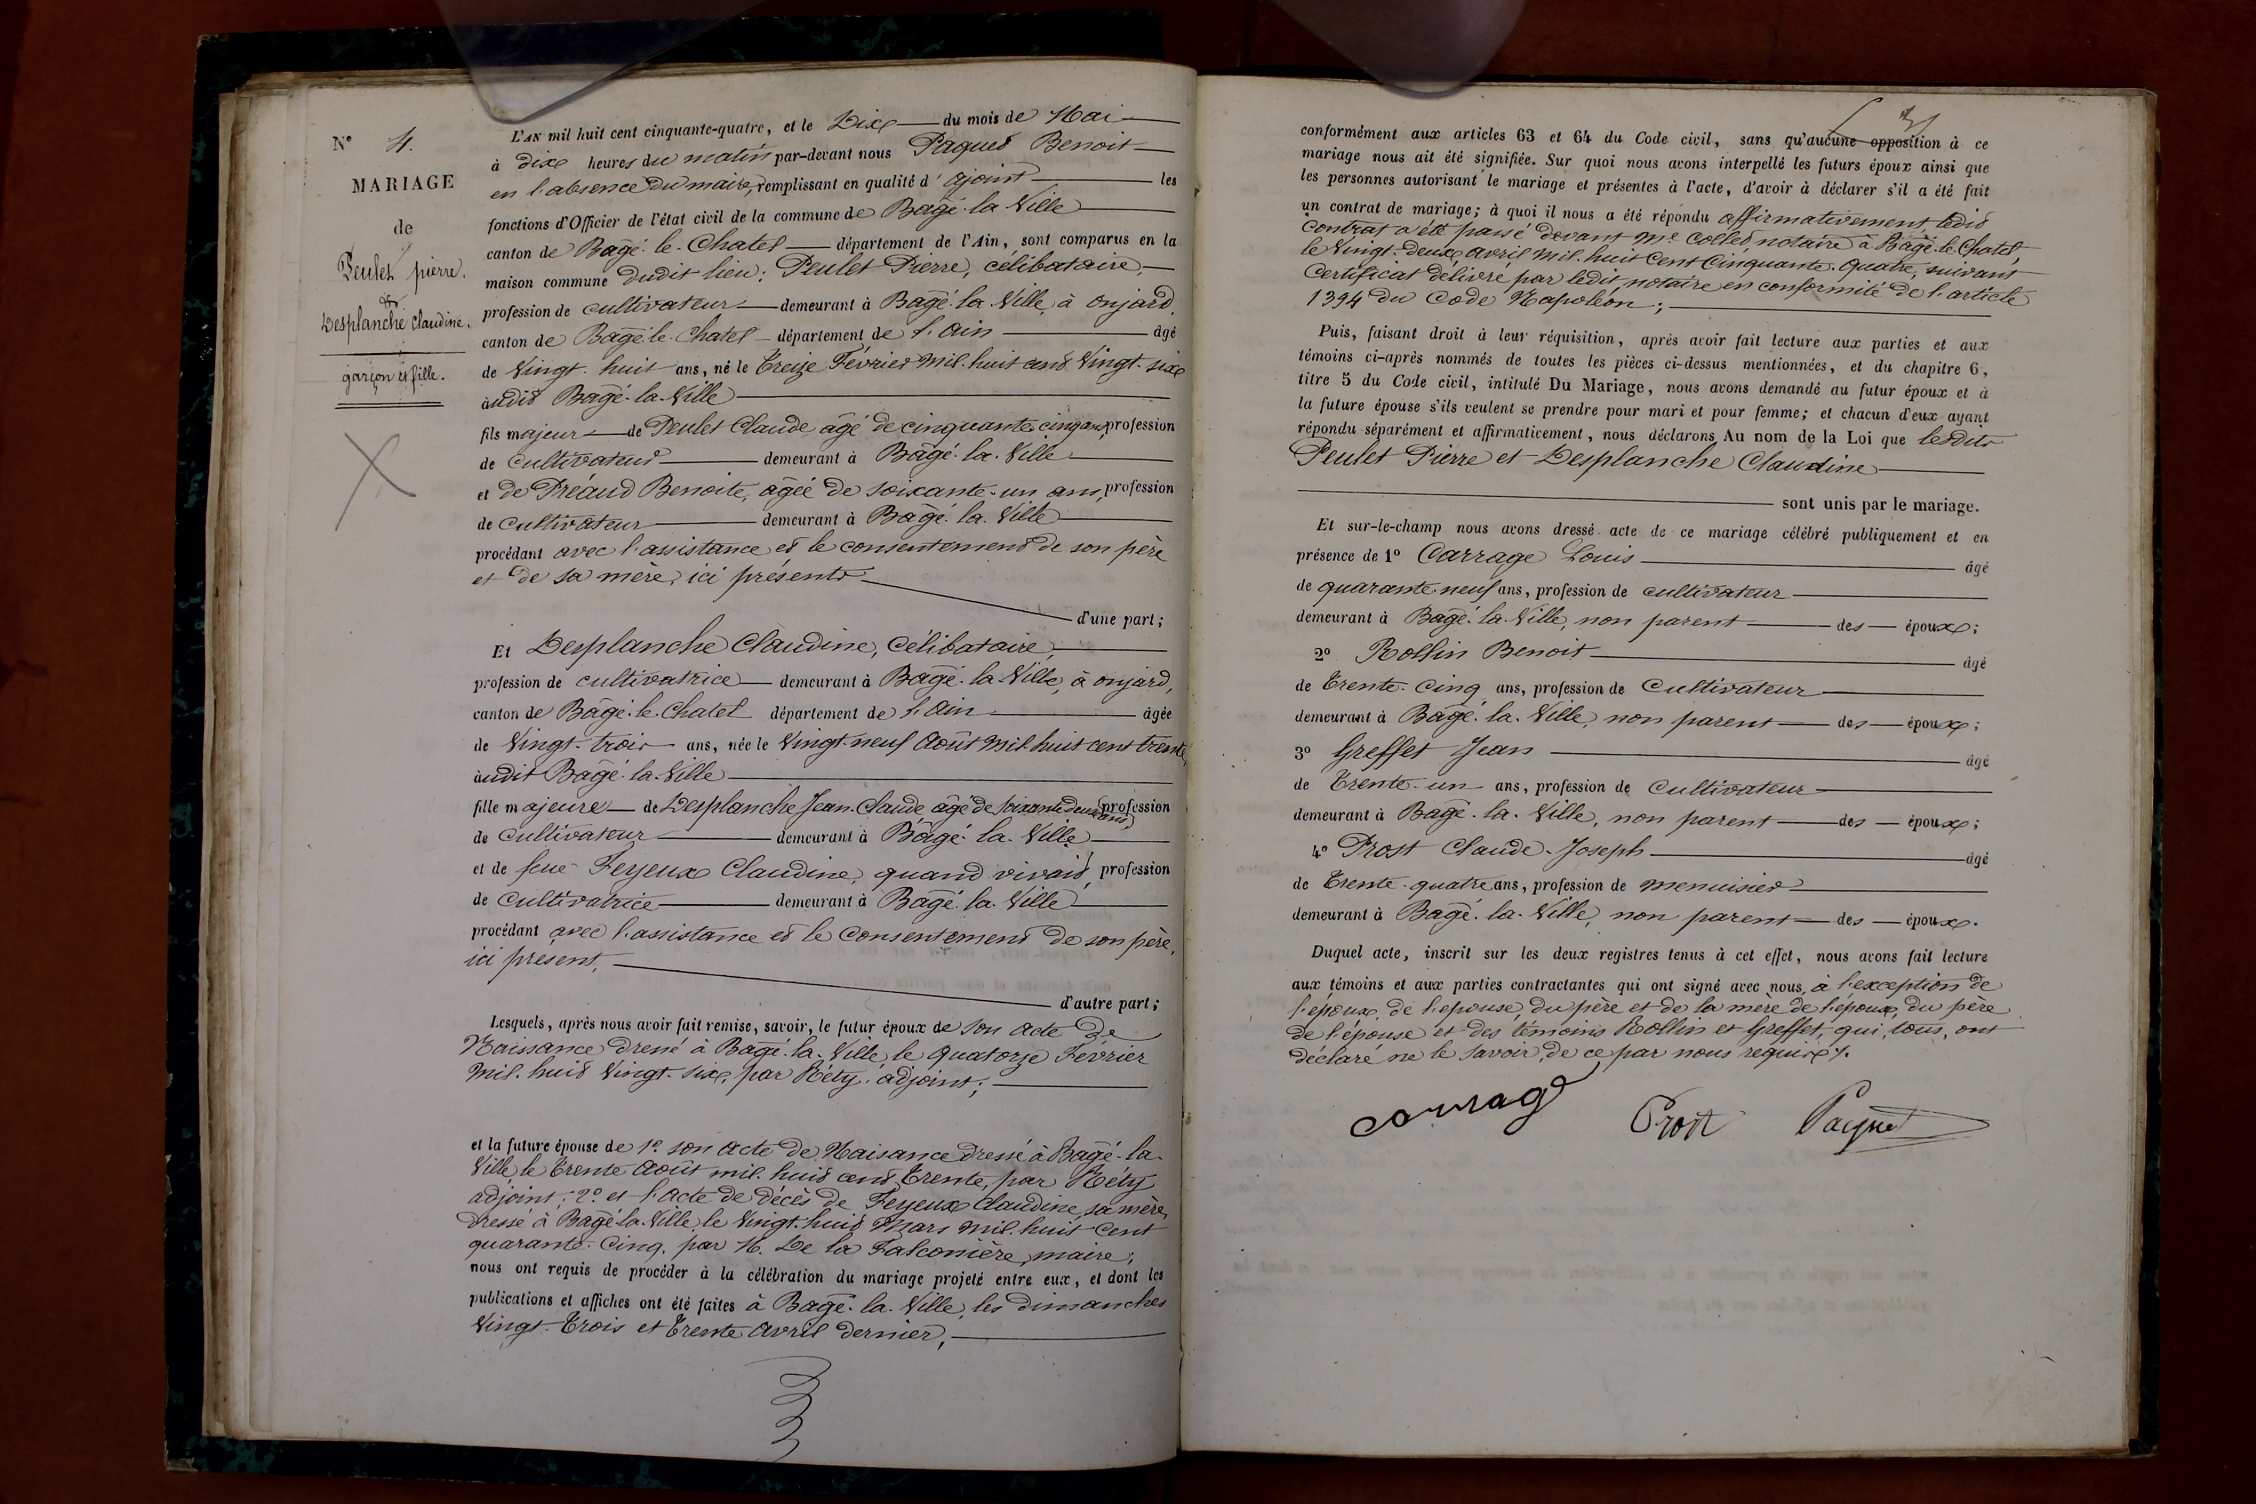 N° 4.
MARIAGE
de
Peulet pierre.
&
Desplanche Claudine.
garçon et fille.
L'AN mil huit cent cinquante-quatre, et le Dix du mois de Mai
à dix heures du matin par-devant nous Paques Benoit
en l'absence du maire, remplissant en qualité d'ajoint les
fonctions d'Officier de l'état civil de la commune de Bâgé-la-Ville
canton de Bâgé-le-Chatel département de l'Ain, sont comparus en la
maison commune dudit lieu: Peulet Pierre, célibataire,
profession de cultivateur demeurant à Bâgé-la-Ville, à onjard,
canton de Bâgé-le-Chatel département de l'ain âgé
de Vingt-huit ans, né le Treize Février mil-huit cent Vingt-six
àudit Bâgé-la-Ville
fils majeur de Peulet Claude âgé de cinquante-cinq ans, profession
de cultivateur demeurant à Bâgé-la-Ville
et de Préaud Benoite, âgée de soixante-un ans, profession
de cultivateur demeurant à Bâgé-la-Ville
procédant avec l'assistance et le consentement de son père
et de sa mère, ici présents
d'une part;
Et Desplanche Claudine, célibataire,
profession de cultivatrice demeurant à Bâgé-la-Ville, à onjard,
canton de Bâgé-le-Chatel département de l'Ain âgée
de Vingt-trois ans, née le Vingt-neuf Août mil huit cent trente,
àudit Bâgé-la-Ville
fille majeure de Desplanche Jean-Claude âgé de soixante deux ans profession
de cultivateur demeurant à Bâgé-la-Ville
et de feue Feyeux Claudine, quand vivait, profession
de cultivatrice demeurant à Bâgé-la-Ville
procédant avec l'assistance et le consentement de son père,
ici présent,
d'autre part;
Lesquels, après nous avoir fait remise, savoir, le futur époux de son acte de
Naissance dressé à Bâgé-la-Ville, le quatorze Février
mil-huit Vingt-six, par Réty, adjoint;
et la future épouse de 1° son acte de Naisance dressé à Bâgé-la-
Ville, le trente Août mil-huit cent Trente, par Réty
adjoint; 2° et l'acte de décès de Feyeux Claudine, sa mère,
dressé à Bâgé-la-Ville, le Vingt-huit Mars mil-huit cent
quarante-Cinq, par M. De la Falconière, maire;
nous ont requis de procéder à la célébration du mariage projeté entre eux, et dont les
publications et affiches ont été faites à Bâgé-la-Ville, les dimanches
Vingt-Trois et Trente Avril dernier,
conformément aux articles 63 et 64 du Code civil, sans qu'aucune opposition à ce
mariage nous ait été signifiée. Sur quoi nous avons interpellé les futurs époux ainsi que
les personnes autorisant le mariage et présentes à l'acte, d'avoir à déclarer s'il a été fait
un contrat de mariage; à quoi il nous a été répondu affirmativement, ledit
Contrat a été passé devant Me Collet, notaire à Bâgé-le-Chatel,
le Vingt-deux avril mil-huit Cent Cinquante-quatre, suivant
Certificat délivré par ledit, notaire en conformité de l'article
1394 du Code Napoléon;
Puis, faisant droit à leur réquisition, après avoir fait lecture aux parties et aux
témoins ci-après nommés de toutes les pièces ci-dessus mentionnées, et du chapitre 6,
titre 5 du Code civil, intitulé Du Mariage, nous avons demandé au futur époux et à
la future épouse s'ils veulent se prendre pour mari et pour femme; et chacun d'eux ayant
répondu séparément et affirmativement, nous déclarons Au nom de la Loi que lesdits
Peulet Pierre et Desplanche Claudine
sont unis par le mariage.
Et sur-le-champ nous avons dressé acte de ce mariage célébré publiquement et en
présence de 1° Carrage Louis âgé
de quarante-neuf ans, profession de cultivateur
demeurant à Bâgé-la-Ville, non parent des époux;
2° Rollin Benoit âgé
de Trente-Cinq ans, profession de cultivateur
demeurant à Bâgé-la-Ville, non parent des époux;
3° Greffet Jean âgé
de Trente-un ans, profession de Cultivateur
demeurant à Bâgé-la-Ville, non parent des époux;
4° Prost Claude-Joseph âgé
de Trente-quatre ans, profession de menuisier
demeurant à Bâgé-la-Ville, non parent des époux.
Duquel acte, inscrit sur les deux registres tenus à cet effet, nous avons fait lecture
aux témoins et aux parties contractantes qui ont signé avec nous, à l'exception de
l'époux, de l'épouse, du père et de la mère de l'époux, du père
de l'épouse et des témoins Rollin et Greffet, qui, tous, ont
déclaré ne le savoir, de ce par nous requis.
Carrage Prost Paque